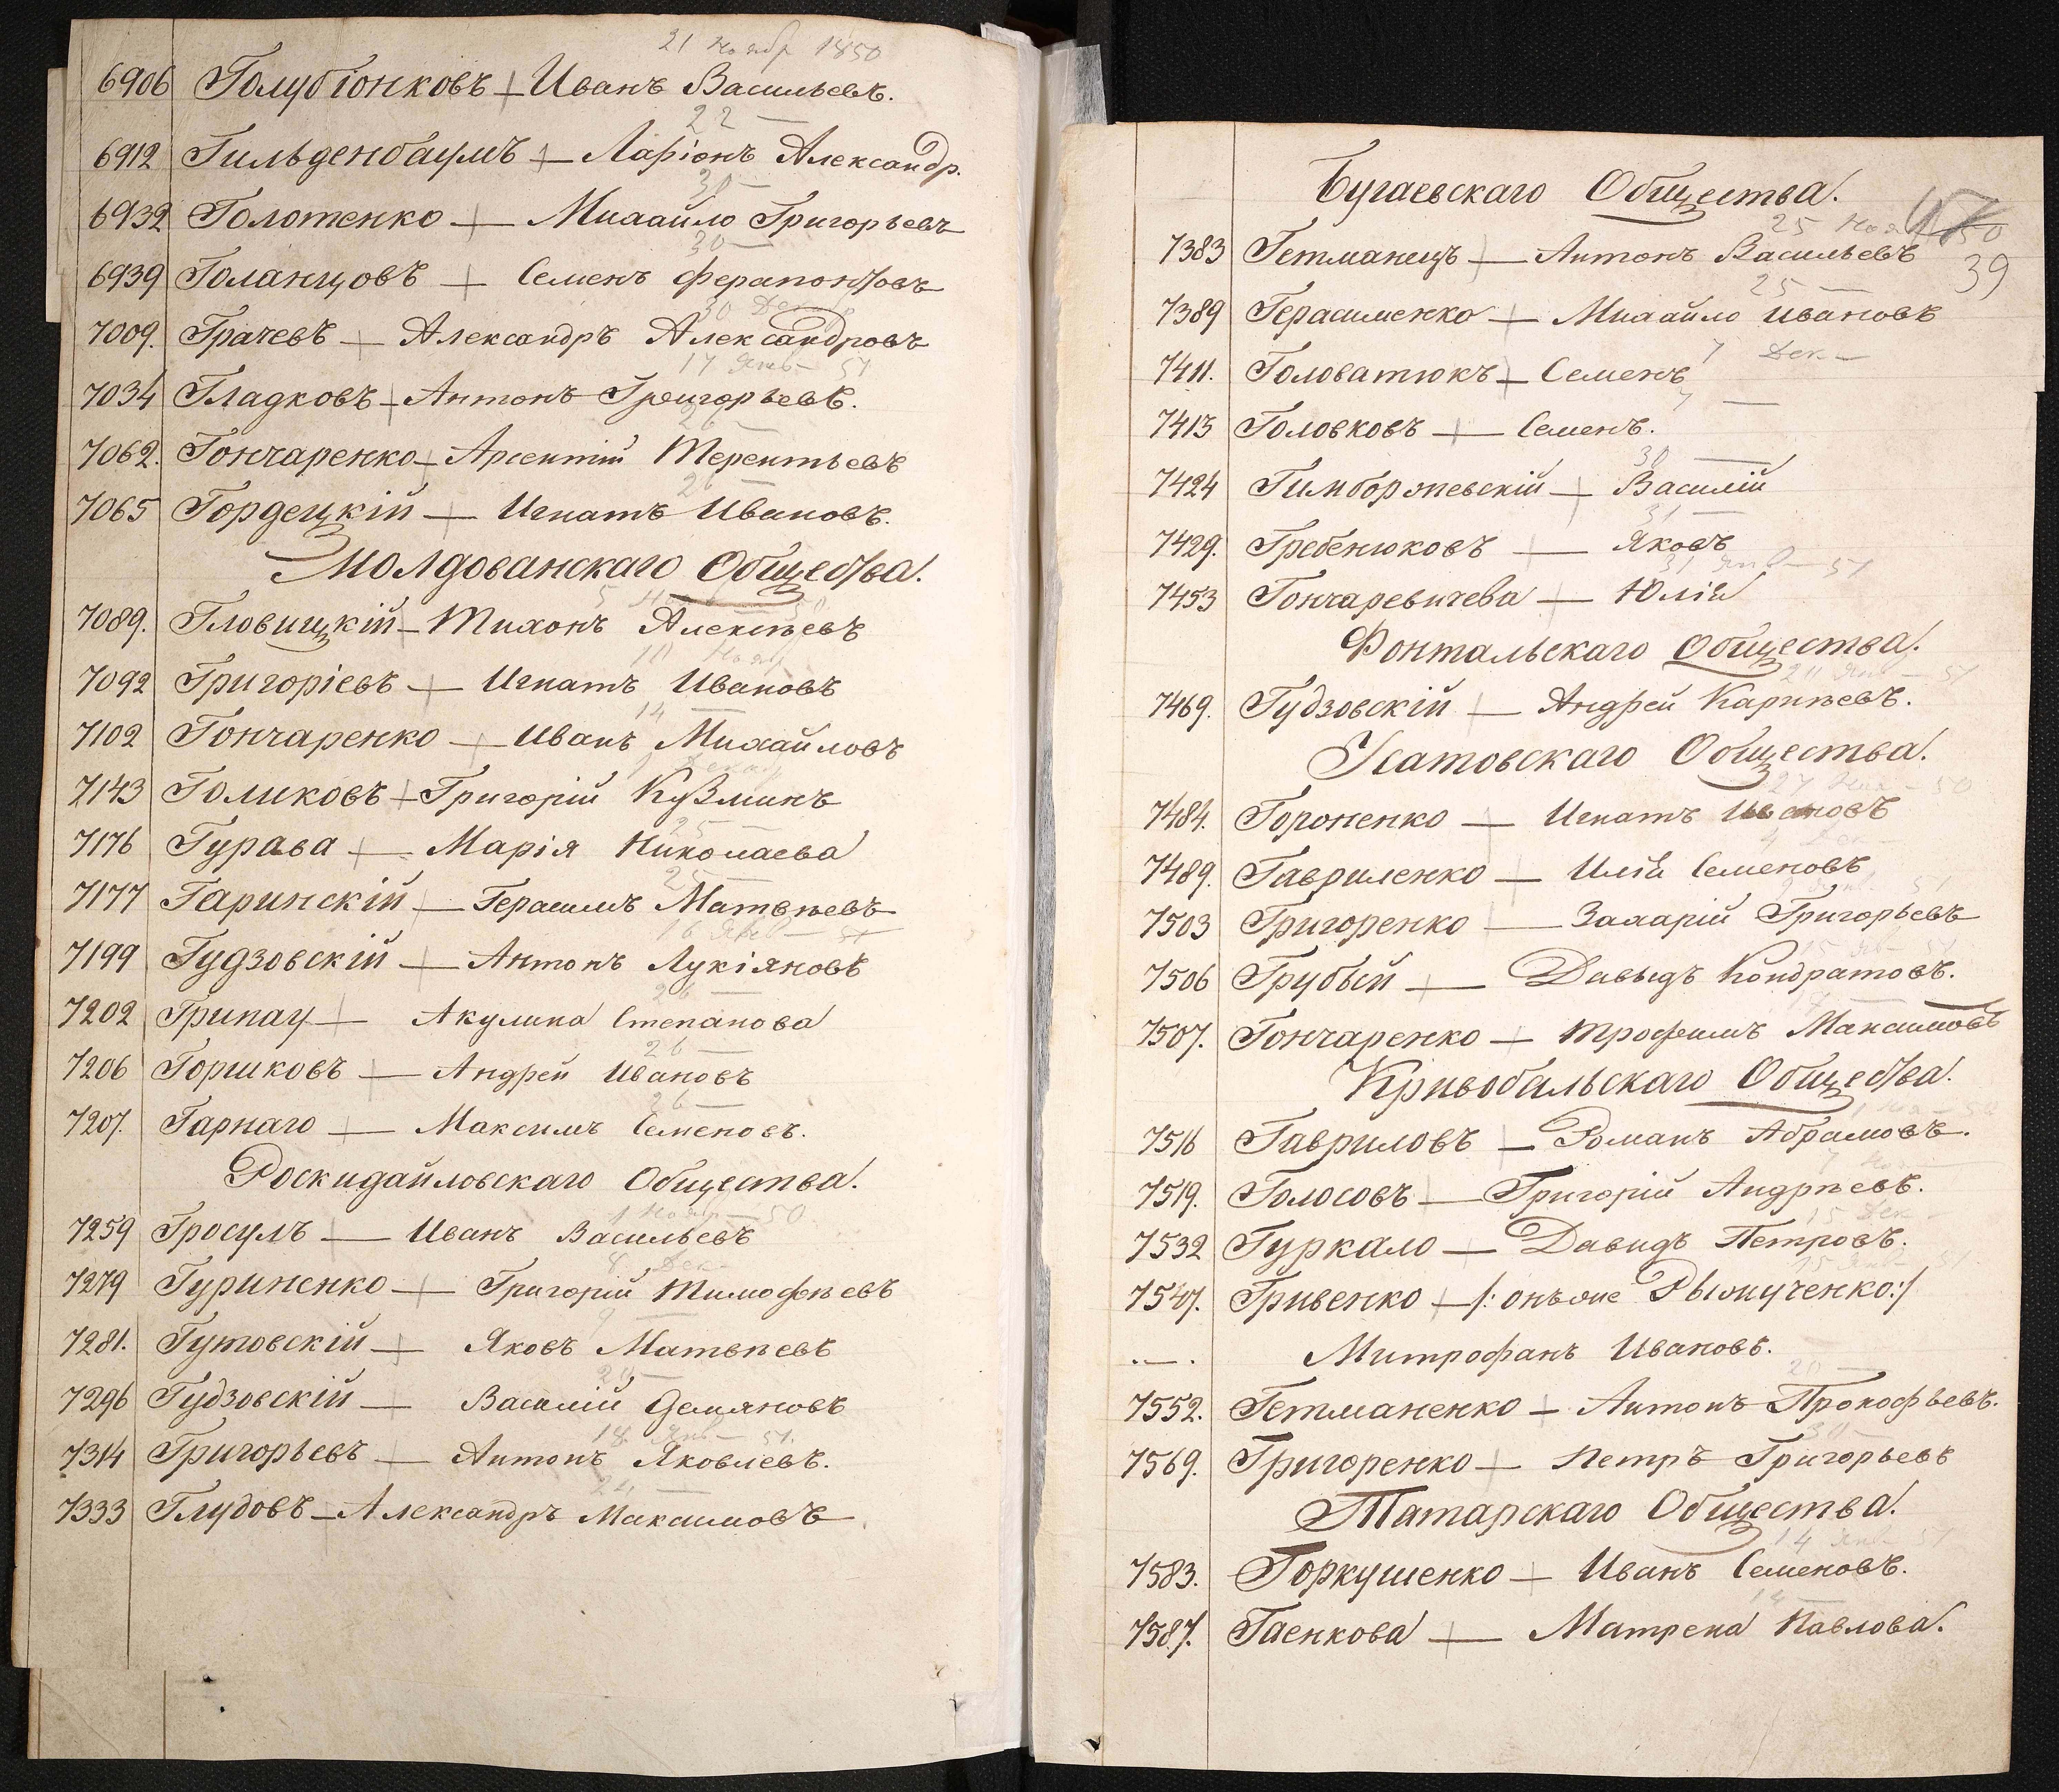 21 Ноябр 1850
6906 Голубіонковъ — Иванъ Васильевъ.
22 —
6912 Гильденбаумъ — Ларіонъ Александр.
30 —
6932 Голотенко — Михайло Григорьевъ
30 —
6939 Голанцовъ — Семенъ Ферапонтовъ
30 Дек
7009. Грачевъ — Александръ Александровъ
17 Янв — 51
7034 Гладковъ — Антонъ Григорьевъ.
26 —
7062. Гончаренко — Арсентій Терентьевъ
26 —
7065 Гордецкій — Игнатъ Ивановъ.
Молдованскаго Общества.
5 Нояб 50
7089. Гловицкій — Тихонъ Алексѣевъ
10 Нояб
7092 Григоріевъ — Игнатъ Ивановъ
14 —
7102 Гончаренко — Иванъ Михайловъ
9 Декаб
7143 Голиковъ — Григорій Кузминъ
25 —
7176 Гурава — Марія Николаева
25 —
7177 Гаринскій — Герасимъ Матвѣевъ
16 Янв — 51
7199 Гудзовскій — Антонъ Лукіяновъ
26 —
7202 Грипау — Акулина Степанова
26 —
7206 Горшковъ — Андрей Ивановъ
26 —
7207. Гарнаго — Максимъ Семеновъ.
Роскидайловскаго Общества.
1 Нояб — 50
7259 Гросулъ — Иванъ Васильевъ
8 Дек —
7279 Гуриненко — Григорій Тимофѣевъ
9 —
7281. Гутовскій — Яковъ Матвѣевъ
20 —
7296 Гудзовскій — Василій Демяновъ
18 Янв — 51.
7314 Григорьевъ — Антонъ Яковлевъ.
24 —
7333 Глудовъ — Александръ Максимовъ
Бугаевскаго Общества.
25 Ноя 50
39
7383 Гетманецъ — Антонъ Васильевъ
25 —
7389 Герасименко — Михайло Ивановъ
7 Дек —
7411. Головатюкъ — Семенъ
7 —
7413 Головковъ — Семенъ.
30 —
7424 Гимборжевскій — Василій
31 —
7429. Гребенюковъ — Яковъ
31 Янв — 51
7453 Гончаревичева — Юлія
Фонтальскаго Общества.
24 Янв — 51
7469. Гудзовскій — Андрей Карпѣевъ.
Усатовскаго Общества.
27 Ноя — 50
7484. Гороненко — Игнатъ Ивановъ
4 Дек —
7489. Гавриленко — Илія Семеновъ
51
7503 Григоренко — Захарій Григорьевъ
15 Янв 51
7506 Грубый — Давыдъ Кондратовъ.
17 —
7507. Гончаренко — Трофимъ Максимовъ
Кривобальскаго Общества.
1 Ноя — 50
7516 Гавриловъ — Романъ Абрамовъ.
7 Ноя
7519. Голосовъ — Григорій Андрѣевъ.
15 Дек —
7532 Гуркало — Давидъ Петровъ.
15 Янв — 51
7547. Гривенко — /: онъже Рымученко:/
.—. Митрофанъ Ивановъ.
20 —
7552. Гетманенко — Антонъ Прокофьевъ.
30 —
7569. Григоренко — Петръ Григорьевъ
Татарскаго Общества.
14 Янв 51
7583. Горкушенко — Иванъ Семеновъ.
14 —
7587. Гаенкова — Матрена Павлова.